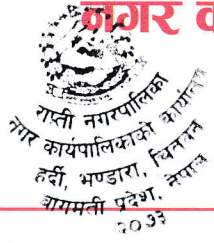 नगर क
राप्ती नगरपालिका
नगर कार्यपालिकाको कार्यालय
हर्दी, भण्डारा, चितवन
बागमती प्रदेश, नेपाल
२०७३